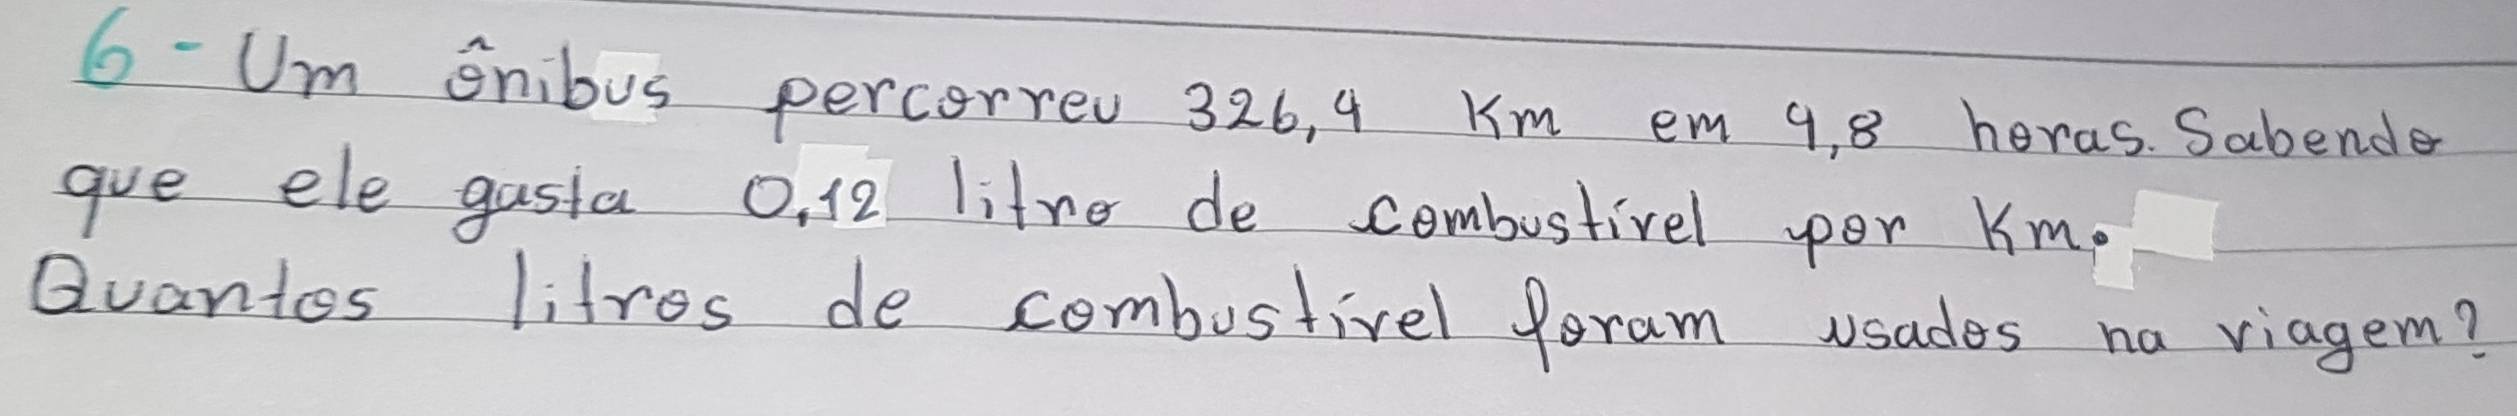 6 - Um ônibus percorreu 326,4 Km em 4,8 horas. Sabendo
que ele gasta 0,12 litro de combustível por Km.
Quantos litros de combustível foram usados na viagem?